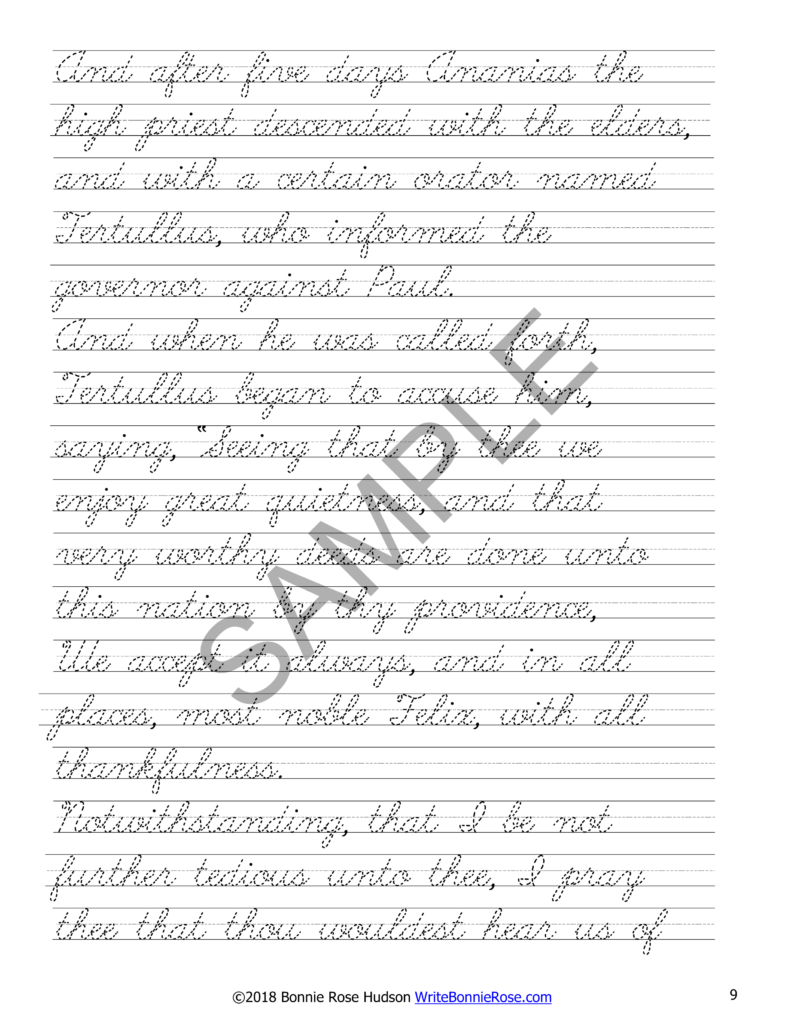 And after five days Ananias the
high priest descended with the elders,
and with a certain orator named
Tertullus, who informed the
governor against Paul.
And when he was called forth,
Tertullus began to accuse him,
saying, “Seeing that by thee we
enjoy great quietness, and that
very worthy deeds are done unto
this nation by thy providence,
We accept it always, and in all
places, most noble Felix, with all
thankfulness.
Notwithstanding, that I be not
further tedious unto thee, I pray
thee that thou wouldest hear us of
SAMPLE
©2018 Bonnie Rose Hudson WriteBonnieRose.com
9